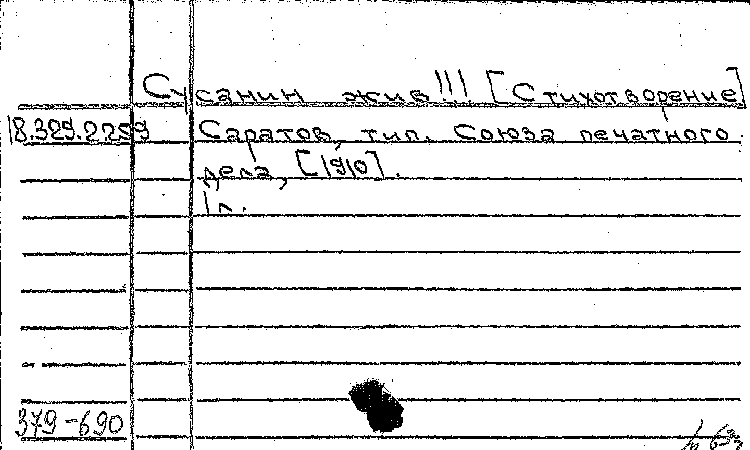 Сусанин жив!!! [Стихотворение]
18.329.2259 Саратов, тип. Союза печатного
дела, [1910].
1 л.
379-690